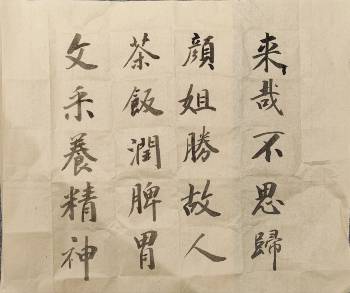 来哉不思歸
顔姐勝故人
茶飯潤脾胃
文采養精神